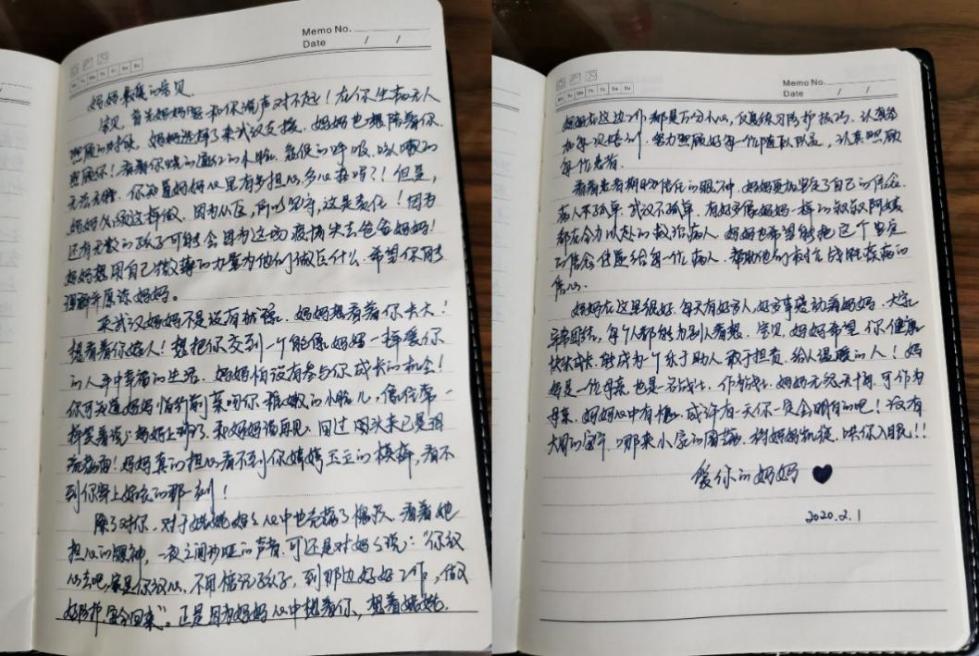 Memo No.
Date / /
妈妈亲爱的宝贝
宝贝 首先妈妈要和你说声对不起！在你生病无人
照顾的时候，妈妈选择了来武汉支援。妈妈也想陪着你
照顾你！看着你烧的通红的小脸，急促的呼吸，
无法无眠。你知道妈妈心里有多担心，多心疼吗？！但是，
妈妈必须这样做。因为，这是责任！因为
还有无数的孩子可能会因为这场疫情失去爸爸妈妈！
妈妈想用自己微薄的力量为他们做些什么。希望你能
理解并原谅妈妈。
来武汉妈妈不是没有犹豫。妈妈想看着你长大！
想看着你嫁人！想把你交到一个能像妈妈一样爱你
的人手中幸福的生活。妈妈怕没有参与你成长的机会！
你可知道妈妈临行前亲吻你稚嫩的小脸儿，像往常一
样笑着说：妈妈上班了，和妈妈说再见。回过头来已是泪
流满面！妈妈真的担心看不到你婷婷玉立的模样，看不
到你穿上嫁衣的那一刻！
除了对你，对于姥姥妈妈心中也充满了愧疚。看着她
担心的眼神，一夜之间沙哑的声音，可还是对妈妈说：“你放
心去吧，家里你放心，不用惦记孩子，到那边好好工作，做好
防护，安全回来”。正是因为妈妈心中想着你，想着姥姥，
Memo No.
Date / /
妈妈在这边工作都是万分小心，认真练习防护技巧，认真参
加每次培训，努力照顾好每一位队员，认真照顾
每一位患者。
看着患者期盼信任的眼神，妈妈更加坚定了自己的信念。
病人不孤单，武汉不孤单，有好多像妈妈一样的叔叔阿姨
都在全力以赴的救治病人。妈妈也希望能把这个坚定
的信念传递给每一位病人，帮助他们树立战胜疾病的
信心。
妈妈在这里很好，每天有好多人，好多事感动着妈妈。大家
非常团结，每个人都能为别人着想。宝贝，妈妈希望你健康
快乐成长，能成为一个乐于助人，敢于担责，给人温暖的人！妈
妈是一位母亲，也是一名战士，作为战士，妈妈无怨无悔，可作为
母亲，妈妈心中有愧，或许有一天你一定会明白的吧！没有
大国的安宁，哪来小家的团圆，待妈妈凯旋，哄你入眠！！
爱你的妈妈 ♥
2020.2.1